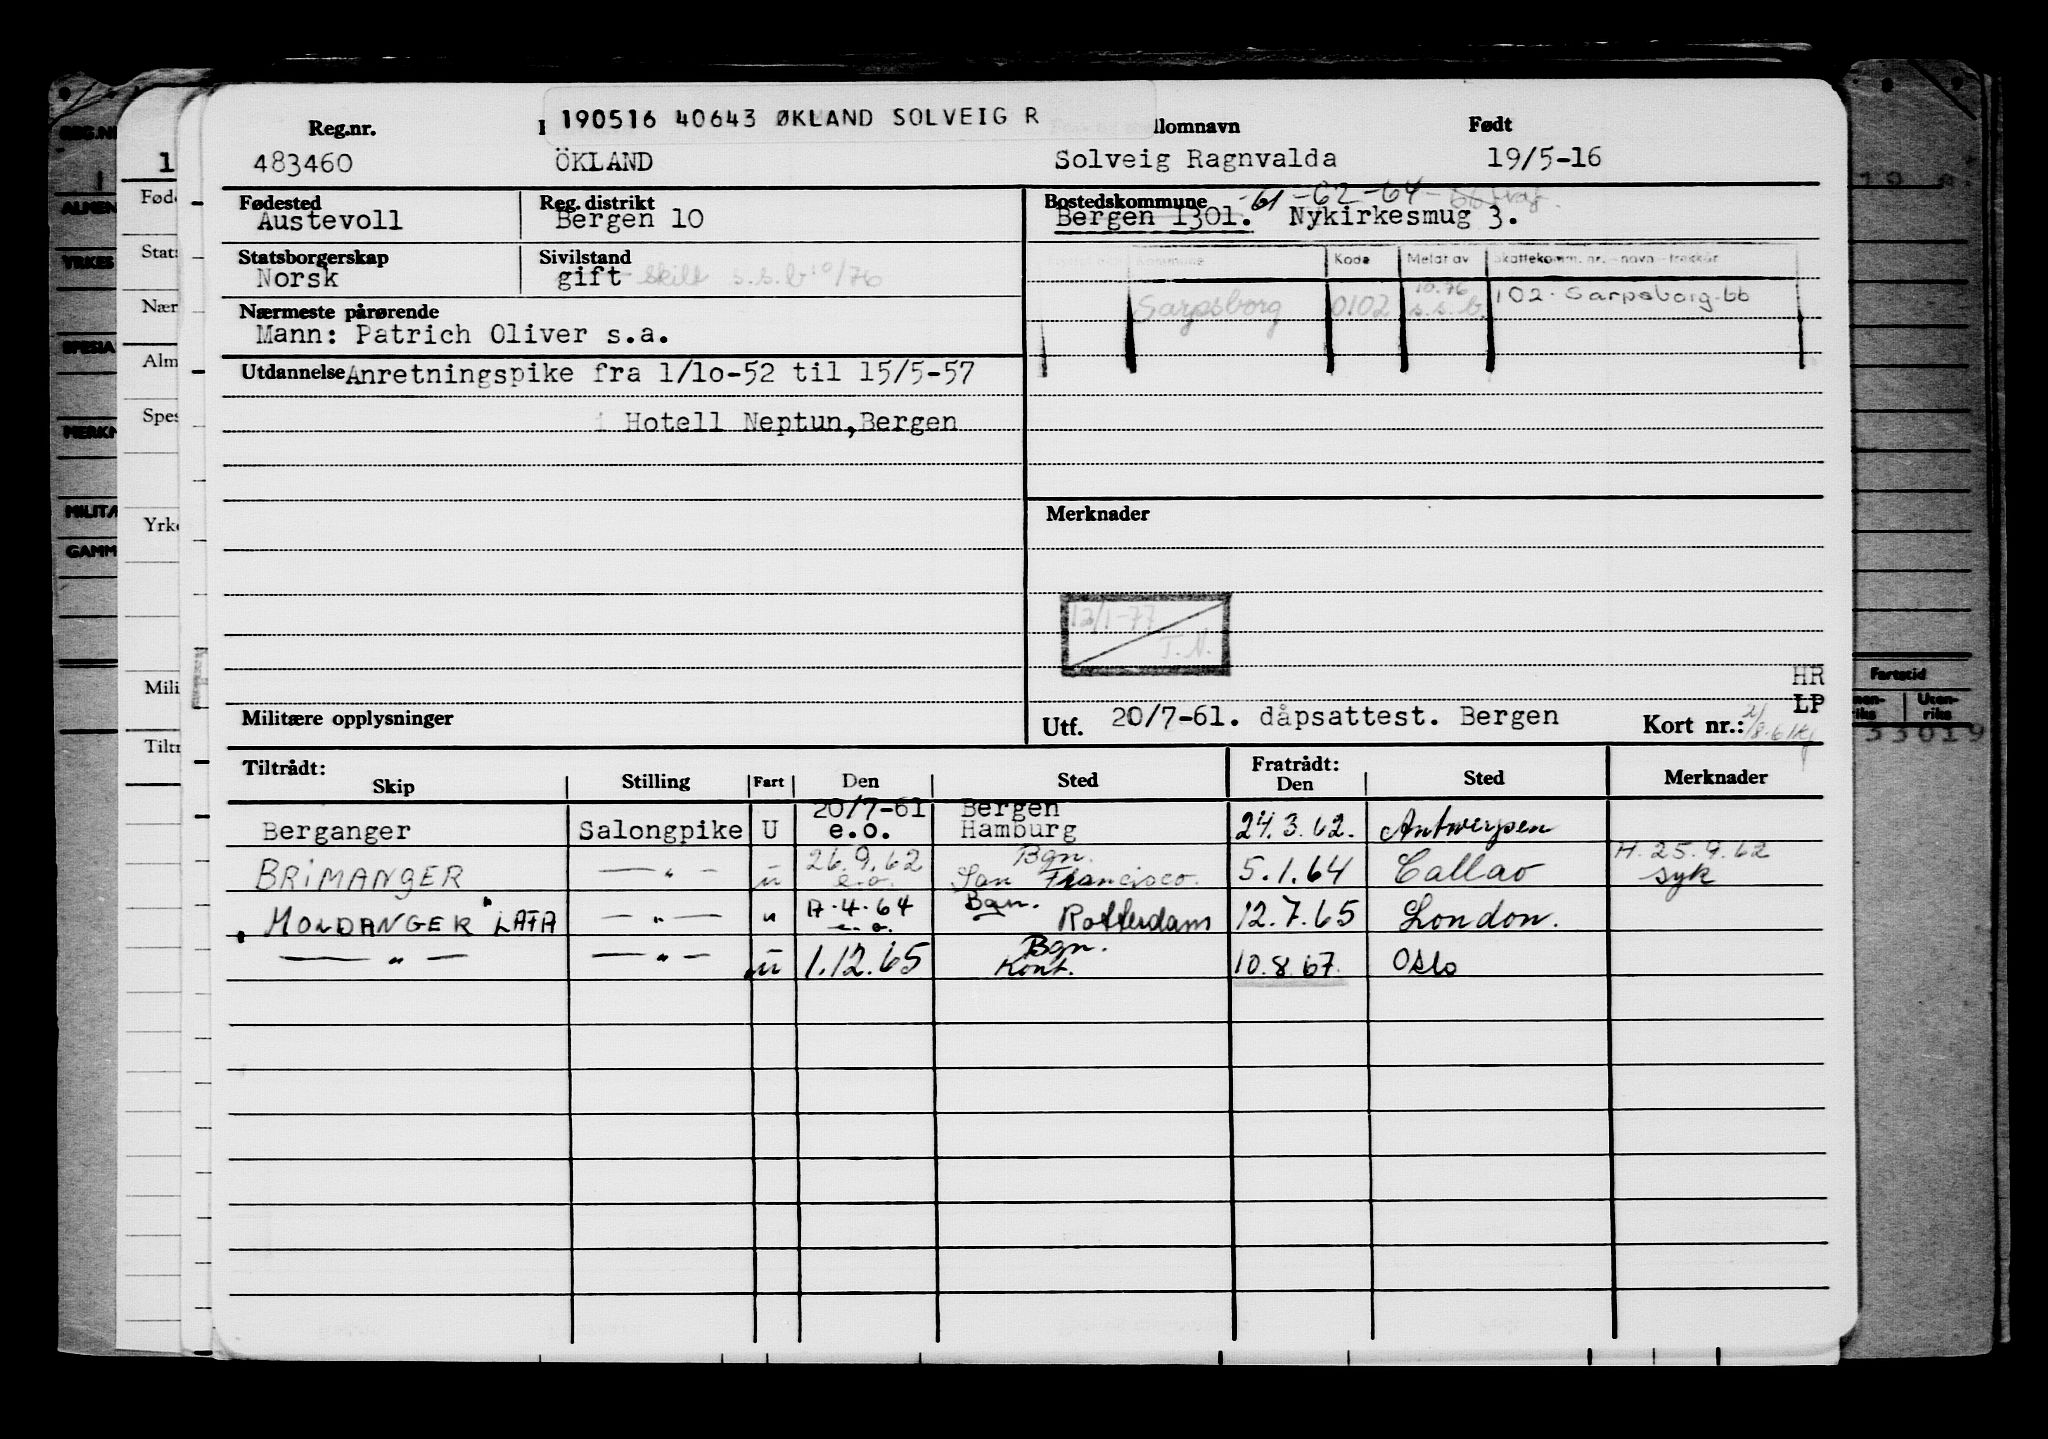 190516 40643 ØKLAND SOLVEIG R
Reg.nr. llomnavn Født
483460 ÖKLAND Solveig Ragnvalda 19/5-16
Fødested Reg. distrikt Bostedskommune -61 -62 -64
Austevoll Bergen 10 Bergen 1301. Nykirkesmug 3.
Statsborgerskap Sivilstand
Norsk gift skilt s.s.b 10/76
Kommune Kode Meldt av Skattekomm. nr. - navn - trekkår
Sarpsborg 0102 10.76 s.s.b. 102 - Sarpsborg - bb
Nærmeste pårørende
Mann: Patrich Oliver s.a.
Utdannelse Anretningspike fra 1/10-52 til 15/5-57
i Hotell Neptun, Bergen
Merknader
12/1-77
T.N.
HR
LP
Militære opplysninger
Utf. 20/7-61. dåpsattest. Bergen Kort nr.:
Tiltrådt: Fratrådt:
Skip Stilling Fart Den Sted Den Sted Merknader
20/7-61 Bergen
Berganger Salongpike U e.o. Hamburg 24.3.62. Antwerpen
26.9.62 Bgn. H. 25.9.62
BRIMANGER — " — u e.o. San Francisco. 5.1.64 Callao syk
"MOLDANGER" LATA — " — " 17.4.64 e.o. Bgn. Rotterdam 12.7.65 London.
— " — — " — u 1.12.65 Bgn. Kont. 10.8.67. Oslo
REG.NR
ALMEN
YRKES
SPESIA
MERKN
MILITÆ
GAMM
1
Føde
Stats
Nær
Alm
Spes
Yrke
Mili
Tiltr
Fartstid
Uten-
riks
33019